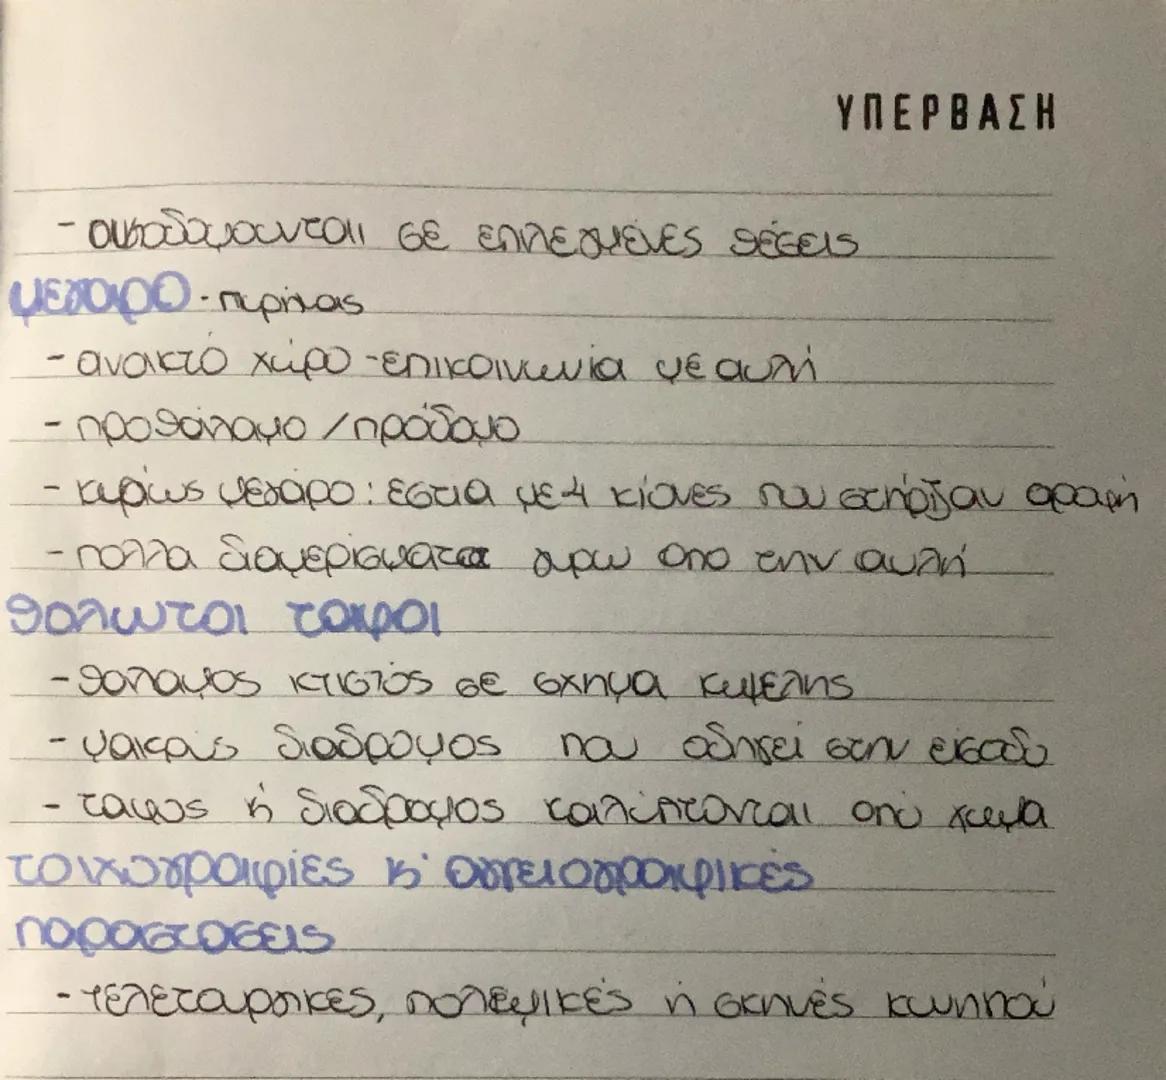 ΥΠΕΡΒΑΣΗ
- οικοδομούνται σε επιλεγμένες θέσεις
μεγαρο · πυρήνας
- ανοικτό χώρο - επικοινωνία με αυλή
- προθάλαμο / πρόδομο
- κυρίως μεγάρο: εστία με 4 κίονες που στήριζαν οροφή
- πολλα διαμερίσματα γυρω απο την αυλή
θολωτοι ταφοι
- θαλαμος κτιστός σε σχημα κυψελης
- μακρύς διαδρομος που οδηγεί στην εισοδο
- ταφος ή διαδρομος καλύπτονται από χωμα
τοιχογραφίες κ' αγγειογραφικές
παραστασεις
- τελετουργικες, πολεμικές ή σκηνές κυνηγού